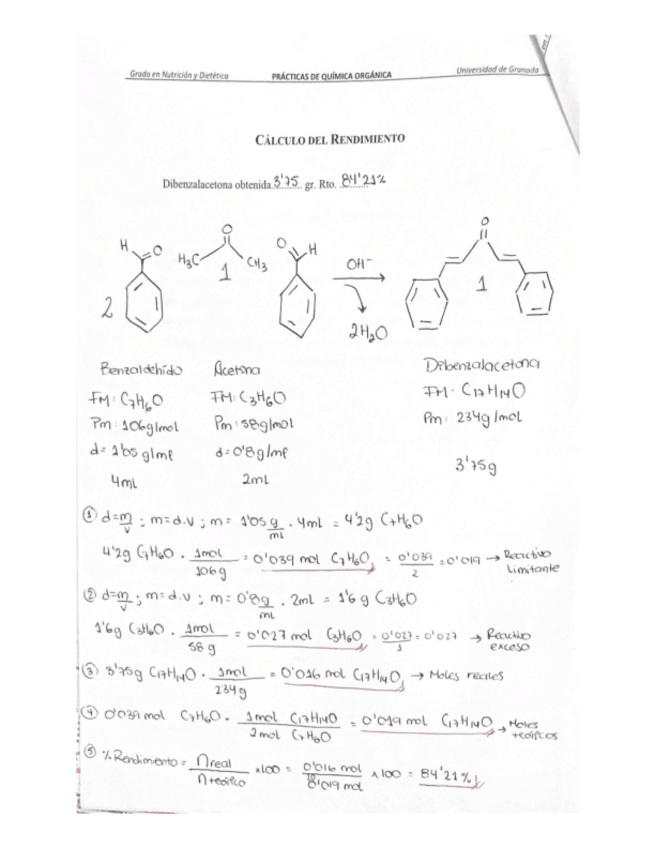 Grado en Nutrición y Dietética PRÁCTICAS DE QUÍMICA ORGÁNICA Universidad de Granada
CÁLCULO DEL RENDIMIENTO
Dibenzalacetona obtenida 3'75 gr. Rto. 84'21%
H O H₃C O CH₃ O H OH⁻ O
2 1 1
2H₂O
Benzaldehído Acetona Dibenzalacetona
FM: C₇H₆O FM: C₃H₆O FM: C₁₇H₁₄O
Pm: 106g/mol Pm: 58g/mol Pm: 234g/mol
d= 1'05 g/ml d= 0'8g/ml
4mL 2mL 3'75g
① d=m/v ; m=d.v ; m= 1'05 g/mL · 4mL = 4'2g C₇H₆O
4'2g C₇H₆O · 1mol/106g = 0'039 mol C₇H₆O = 0'039/2 = 0'019 → Reactivo Limitante
② d=m/v ; m=d.v ; m= 0'8g/mL · 2mL = 1'6 g C₃H₆O
1'6g C₃H₆O · 1mol/58 g = 0'027 mol C₃H₆O = 0'027/1 = 0'027 → Reactivo exceso
③ 3'75g C₁₇H₁₄O · 1mol/234g = 0'016 mol C₁₇H₁₄O → Moles reales
④ 0'039 mol C₇H₆O · 1mol C₁₇H₁₄O/2mol C₇H₆O = 0'019 mol C₁₇H₁₄O → Moles teóricos
⑤ % Rendimiento = n real/n teórico x100 = 0'016 mol/0'019 mol x 100 = 84'21%